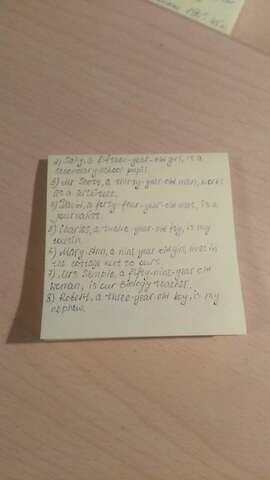 1) Sally, a fifteen-year-old girl, is a
secondary-school pupil.
2) Mr Scott, a thirty-year-old man, works
as a
3) David, a forty-four-year-old man, is a
journalist.
5) Charles, a twelve-year-old boy, is my
cousin.
6) Mary Ann, a nine-year-old girl, lives in
the cottage next to ours.
7) Mrs Simple, a fifty-nine-year old
woman, is our Biology teacher.
8) Robert, a three-year-old boy, is my
nephew.